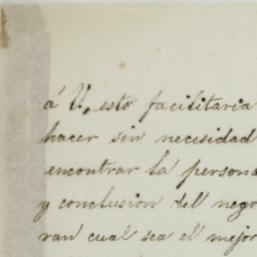 á U, esto facilitaria
hacer sin necesidad
encontrar la persona
y conclusion dell nego
ran cual sea el mejor